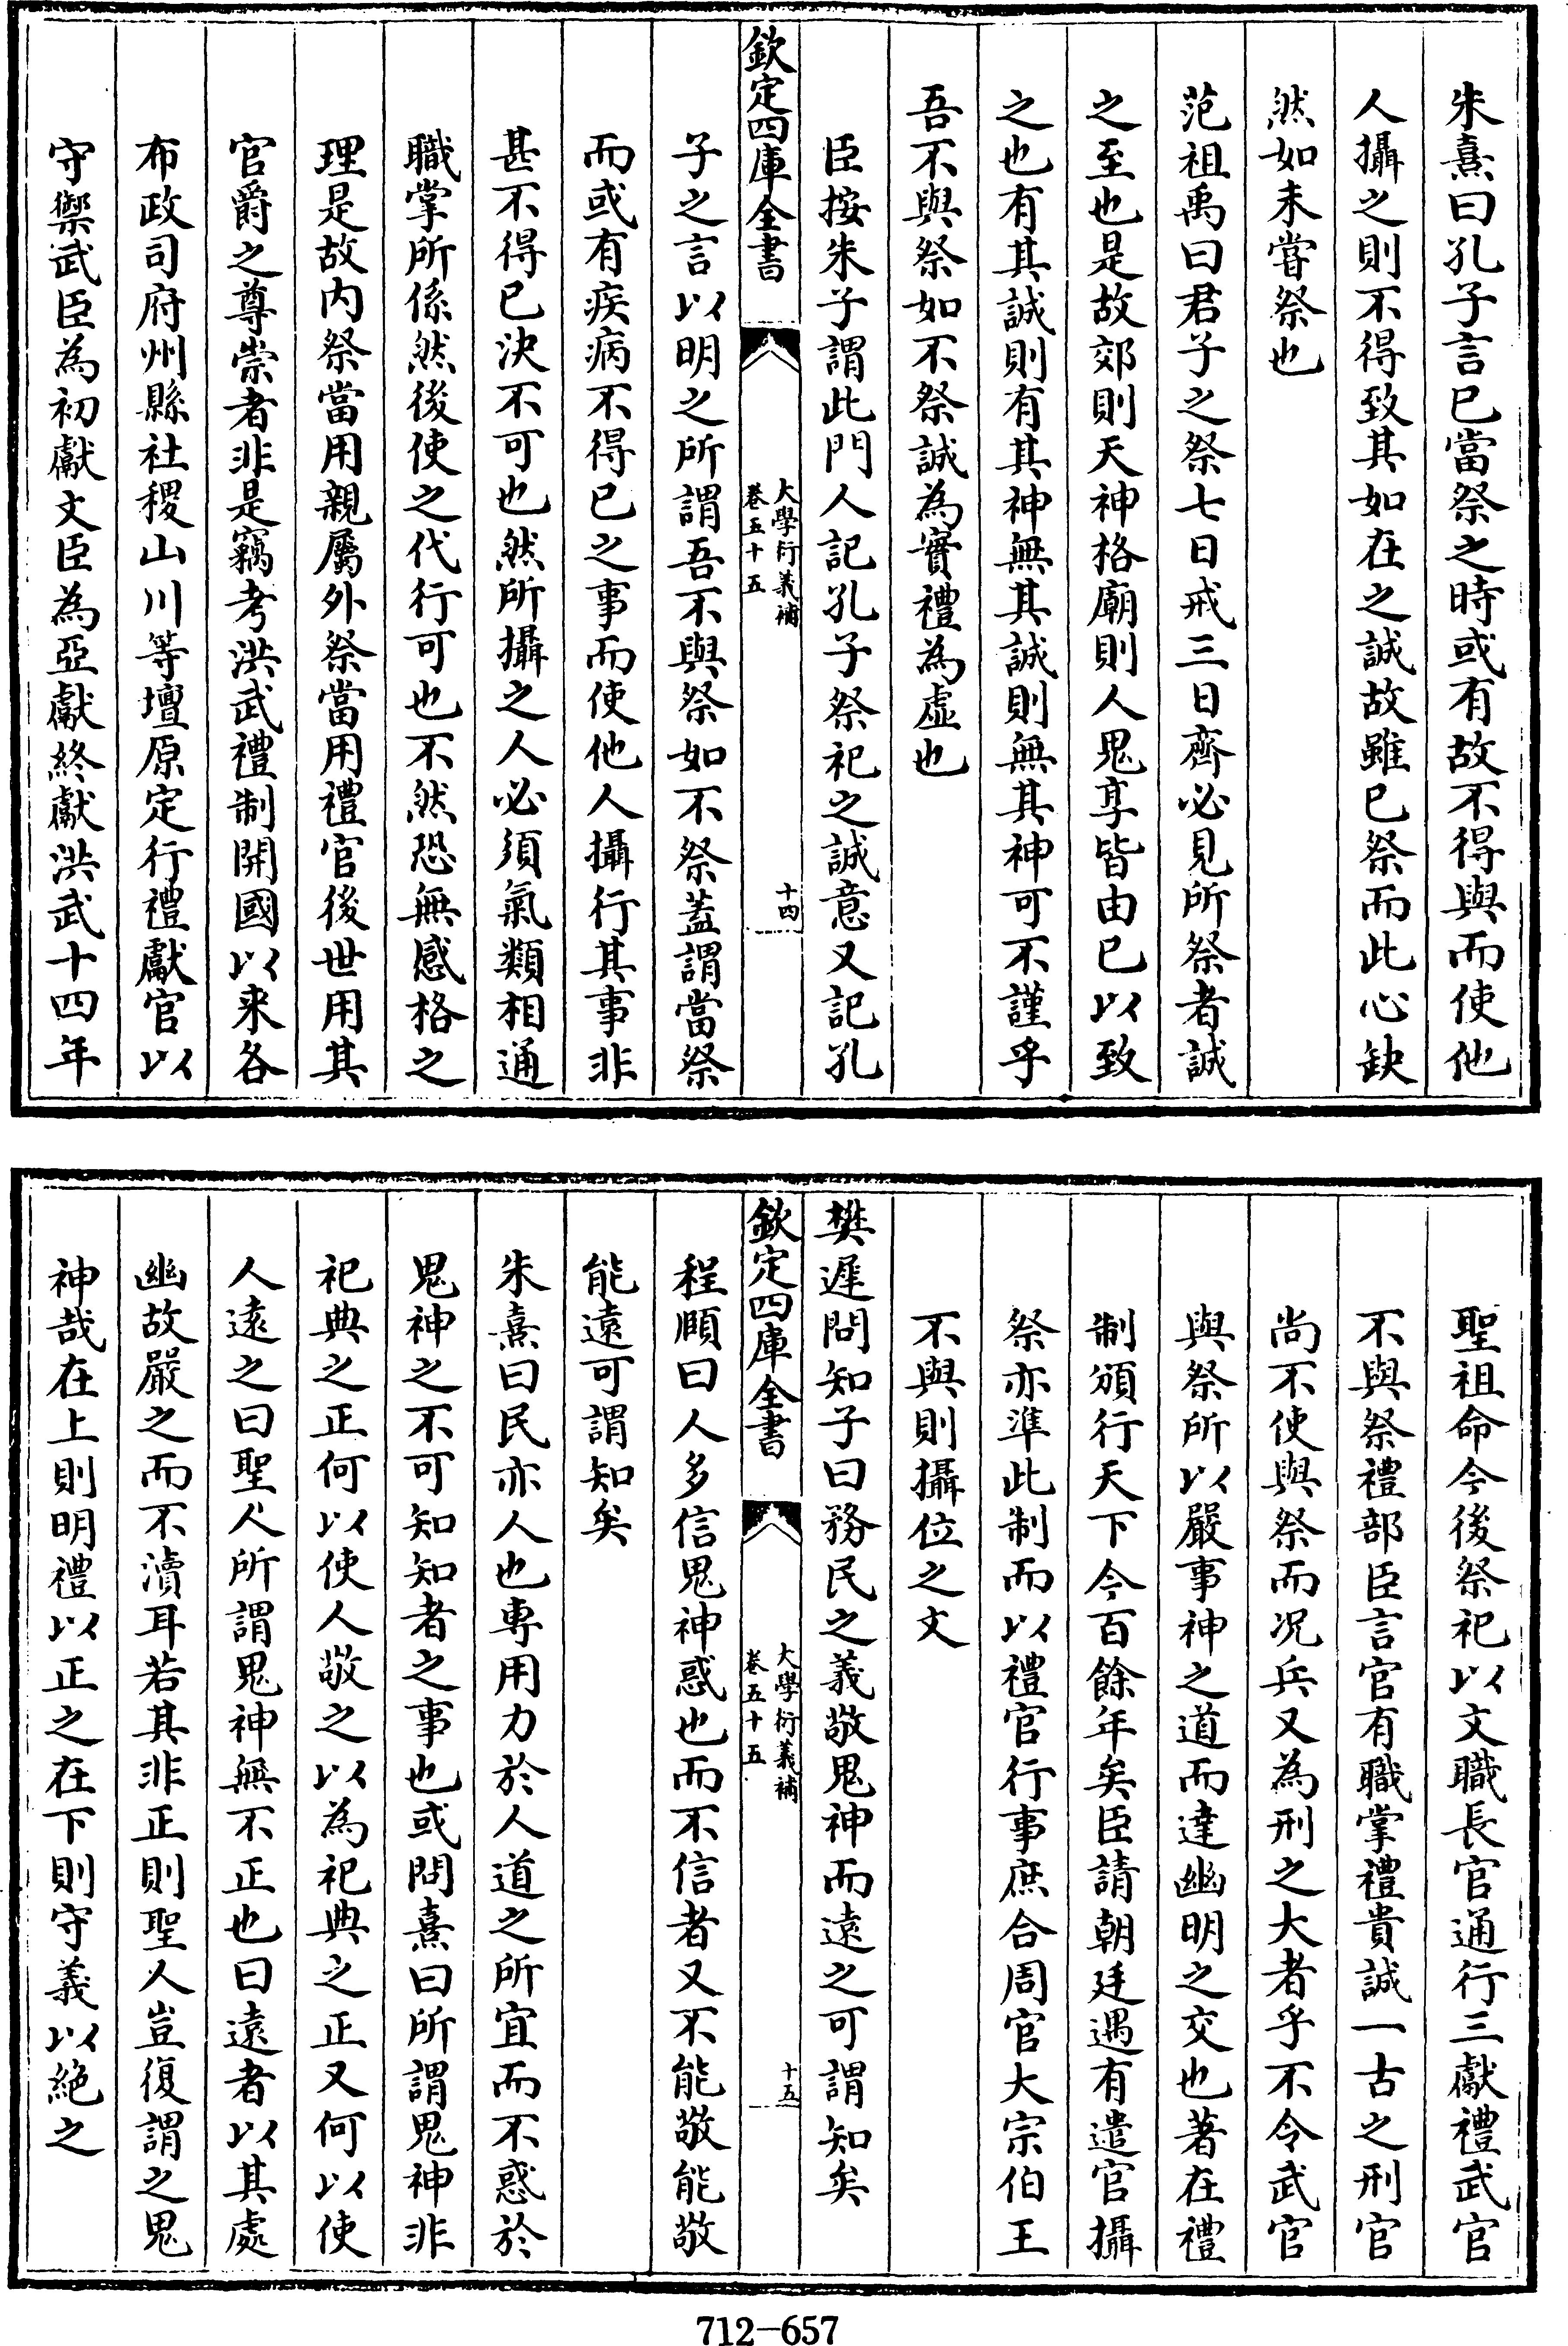 朱熹曰孔子言已當祭之時或有故不得與而使他
人攝之則不得致其如在之誠故雖已祭而此心缺
然如未嘗祭也
范祖禹曰君子之祭七日戒三日齊必見所祭者誠
之至也是故郊則天神格廟則人鬼享皆由已以致
之也有其誠則有其神無其誠則無其神可不謹乎
吾不與祭如不祭誠為實禮為虛也
臣按朱子謂此門人記孔子祭祀之誠意又記孔
欽定四庫全書
大學衍義補
卷五十五
十四
子之言以明之所謂吾不與祭如不祭蓋謂當祭
而或有疾病不得已之事而使他人攝行其事非
甚不得已決不可也然所攝之人必須氣類相通
職掌所係然後使之代行可也不然恐無感格之
理是故内祭當用親屬外祭當用禮官後世用其
官爵之尊崇者非是竊考洪武禮制開國以來各
布政司府州縣社稷山川等壇原定行禮獻官以
守禦武臣為初獻文臣為亞獻終獻洪武十四年
聖祖命今後祭祀以文職長官通行三獻禮武官
不與祭禮部臣言官有職掌禮貴誠一古之刑官
尚不使與祭而况兵又為刑之大者乎不令武官
與祭所以嚴事神之道而達幽明之交也著在禮
制頒行天下今百餘年矣臣請朝廷遇有遣官攝
祭亦準此制而以禮官行事庶合周官大宗伯王
不與則攝位之文
樊遲問知子曰務民之義敬鬼神而遠之可謂知矣
欽定四庫全書
大學衍義補
卷五十五
十五
程頤曰人多信鬼神惑也而不信者又不能敬能敬
能遠可謂知矣
朱熹曰民亦人也專用力於人道之所宜而不惑於
鬼神之不可知知者之事也或問熹曰所謂鬼神非
祀典之正何以使人敬之以為祀典之正又何以使
人遠之曰聖人所謂鬼神無不正也曰遠者以其處
幽故嚴之而不瀆耳若其非正則聖人豈復謂之鬼
神哉在上則明禮以正之在下則守義以絶之
712-657